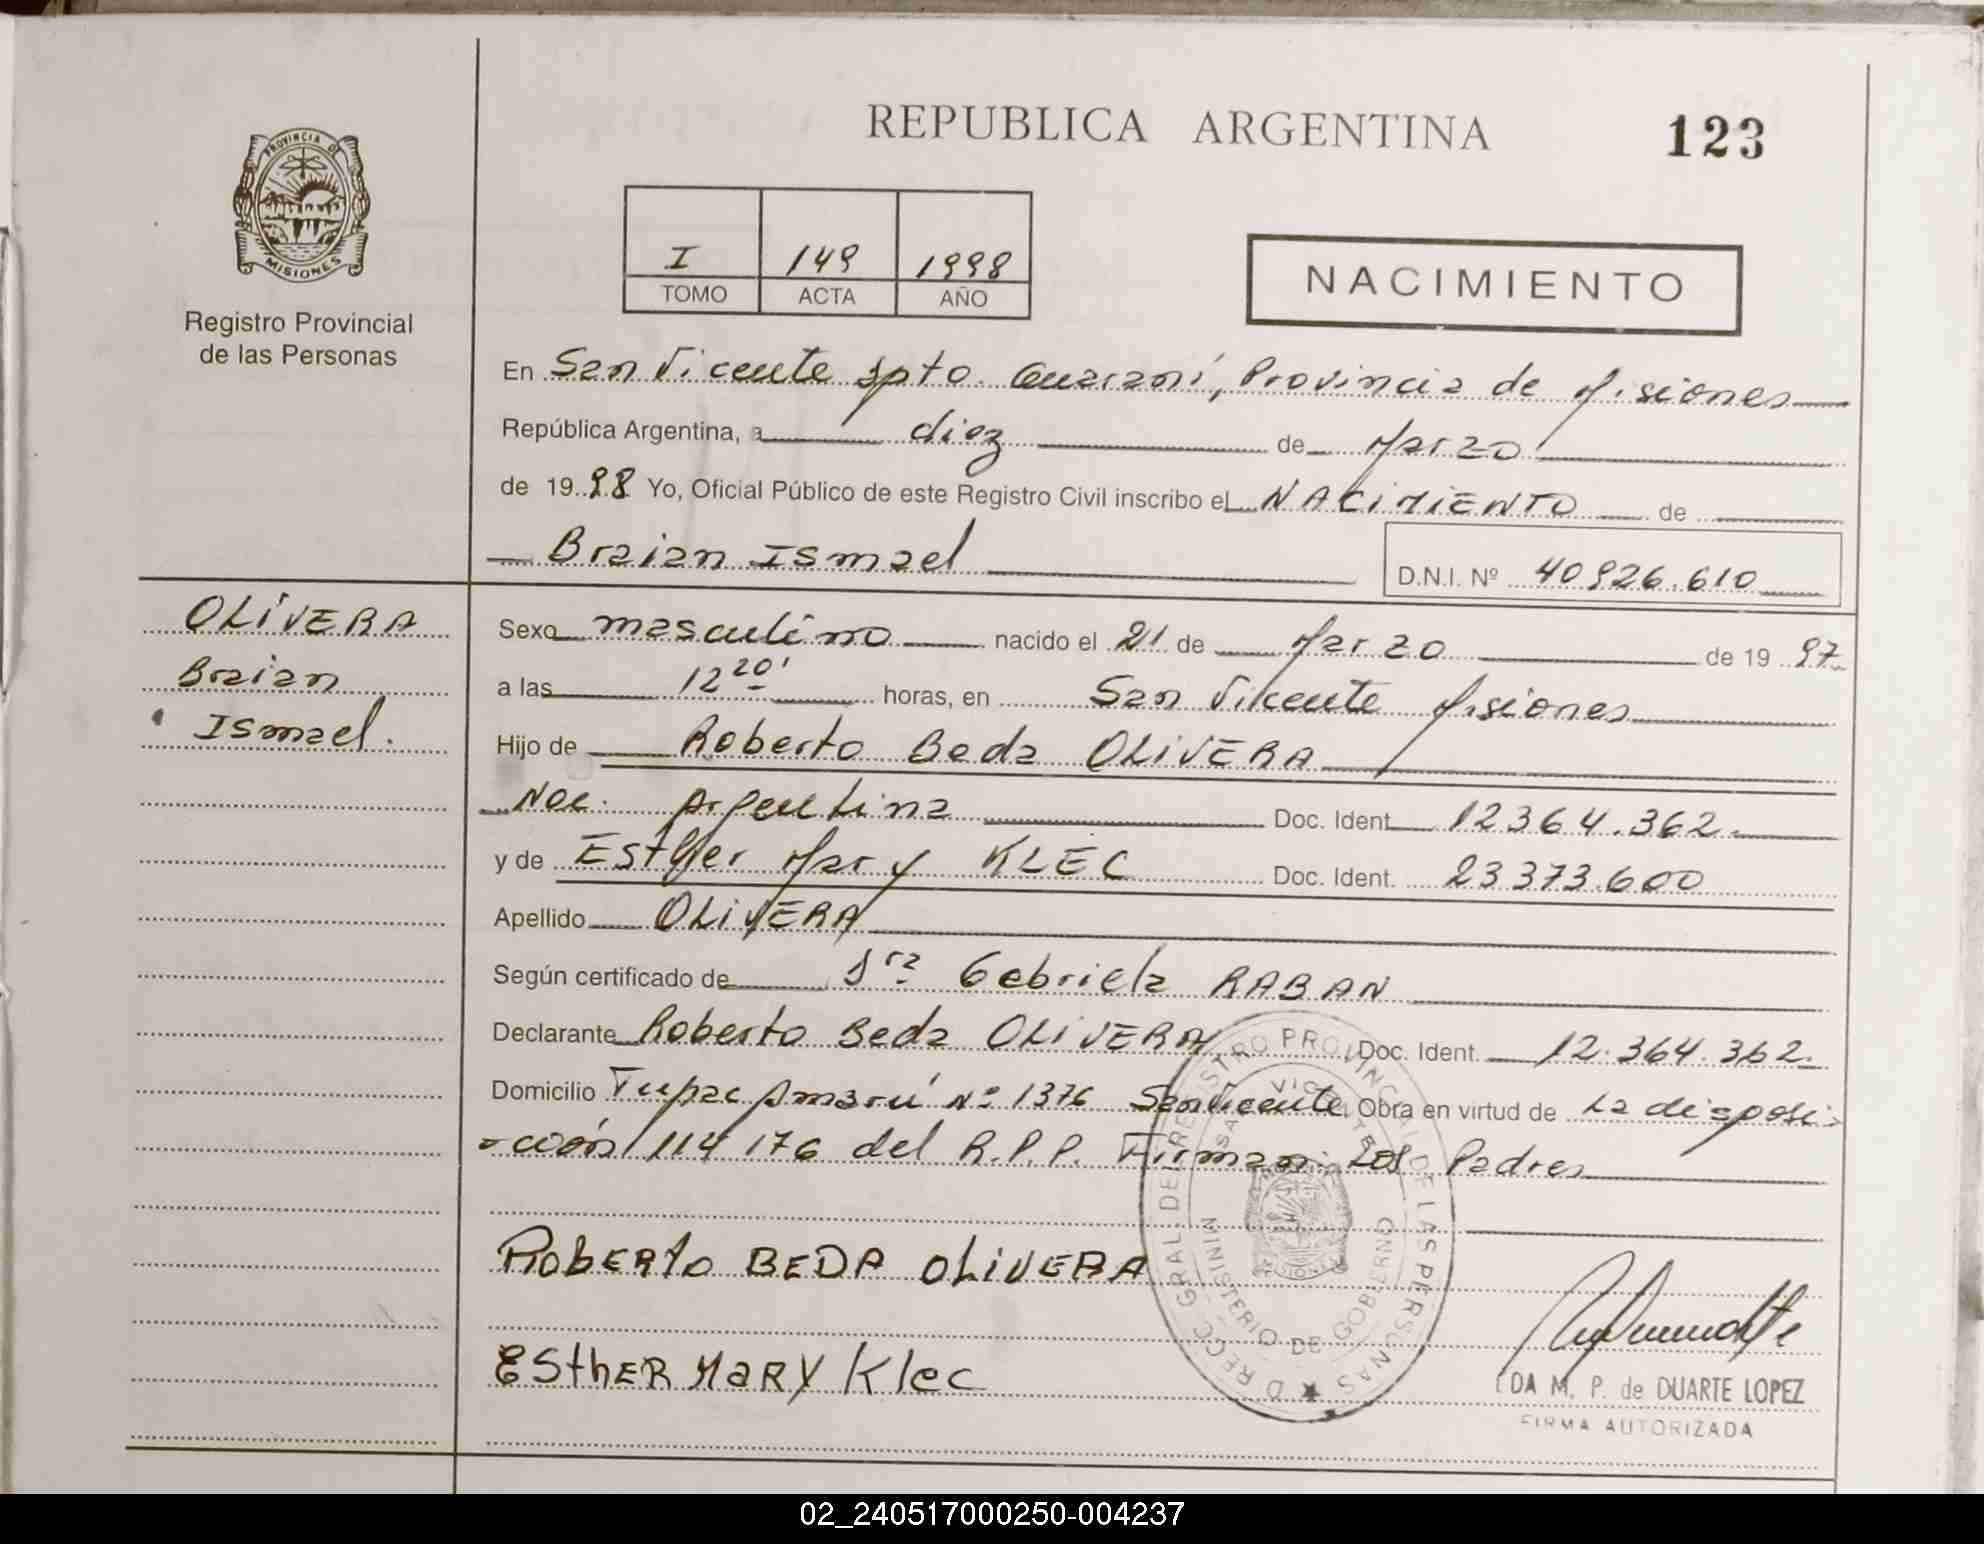 REPUBLICA ARGENTINA
123
PROVINCIA DE
MISIONES
Registro Provincial
de las Personas
I 149 1998
TOMO ACTA AÑO
NACIMIENTO
En San Vicente Dpto. Guaraní, Provincia de Misiones
República Argentina, a diez de Marzo
de 1998 Yo, Oficial Público de este Registro Civil inscribo el NACIMIENTO de
Braian Ismael
D.N.I. Nº 40926.610
OLIVERA
Braian
Ismael.
Sexo masculino nacido el 21 de Marzo de 1997
a las 12 20' horas, en San Vicente Misiones
Hijo de Roberto Beda OLIVERA
Nac. Argentina Doc. Ident. 12364.362.
y de Esther Mary KLEC Doc. Ident. 23373.600
Apellido OLIVERA
Según certificado de Dra Gabriela RABAN
Declarante Roberto Beda OLIVERA Doc. Ident. 12.364.362.
Domicilio Tupac Amarú Nº 1376 San Vicente Obra en virtud de La disposi-
-ción 114 176 del R.P.P. Firman: Los Padres
ROBERTO BEDA OLIVERA
ESTHER MARY Klec
DA M. P. de DUARTE LOPEZ
FIRMA AUTORIZADA
GRAL. DEL REGISTRO PROVINCIAL DE LAS PERSONAS
MINISTERIO DE GOBIERNO
02_240517000250-004237